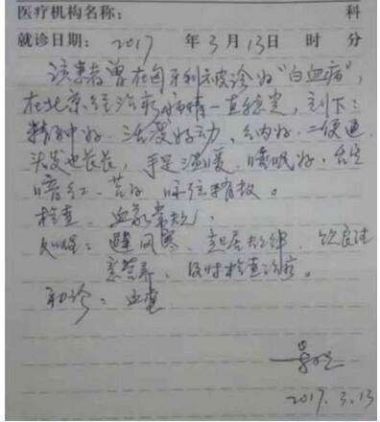 医疗机构名称: 科
就诊日期: 2017 年3月13日 时 分
该患者曾在匈牙利被诊为“白血病”,
在北京经治疗病情一直稳定,刻下:
精神好、活泼好动、纳好、二便通
头发也长长,手足温暖,睡眠好,舌
暗红、苔 脉弦 。
检查:血尿常规。
处理:避风寒、起居规律、饮食注
意营养、及时检查治疗。
初诊:血
2017.3.13